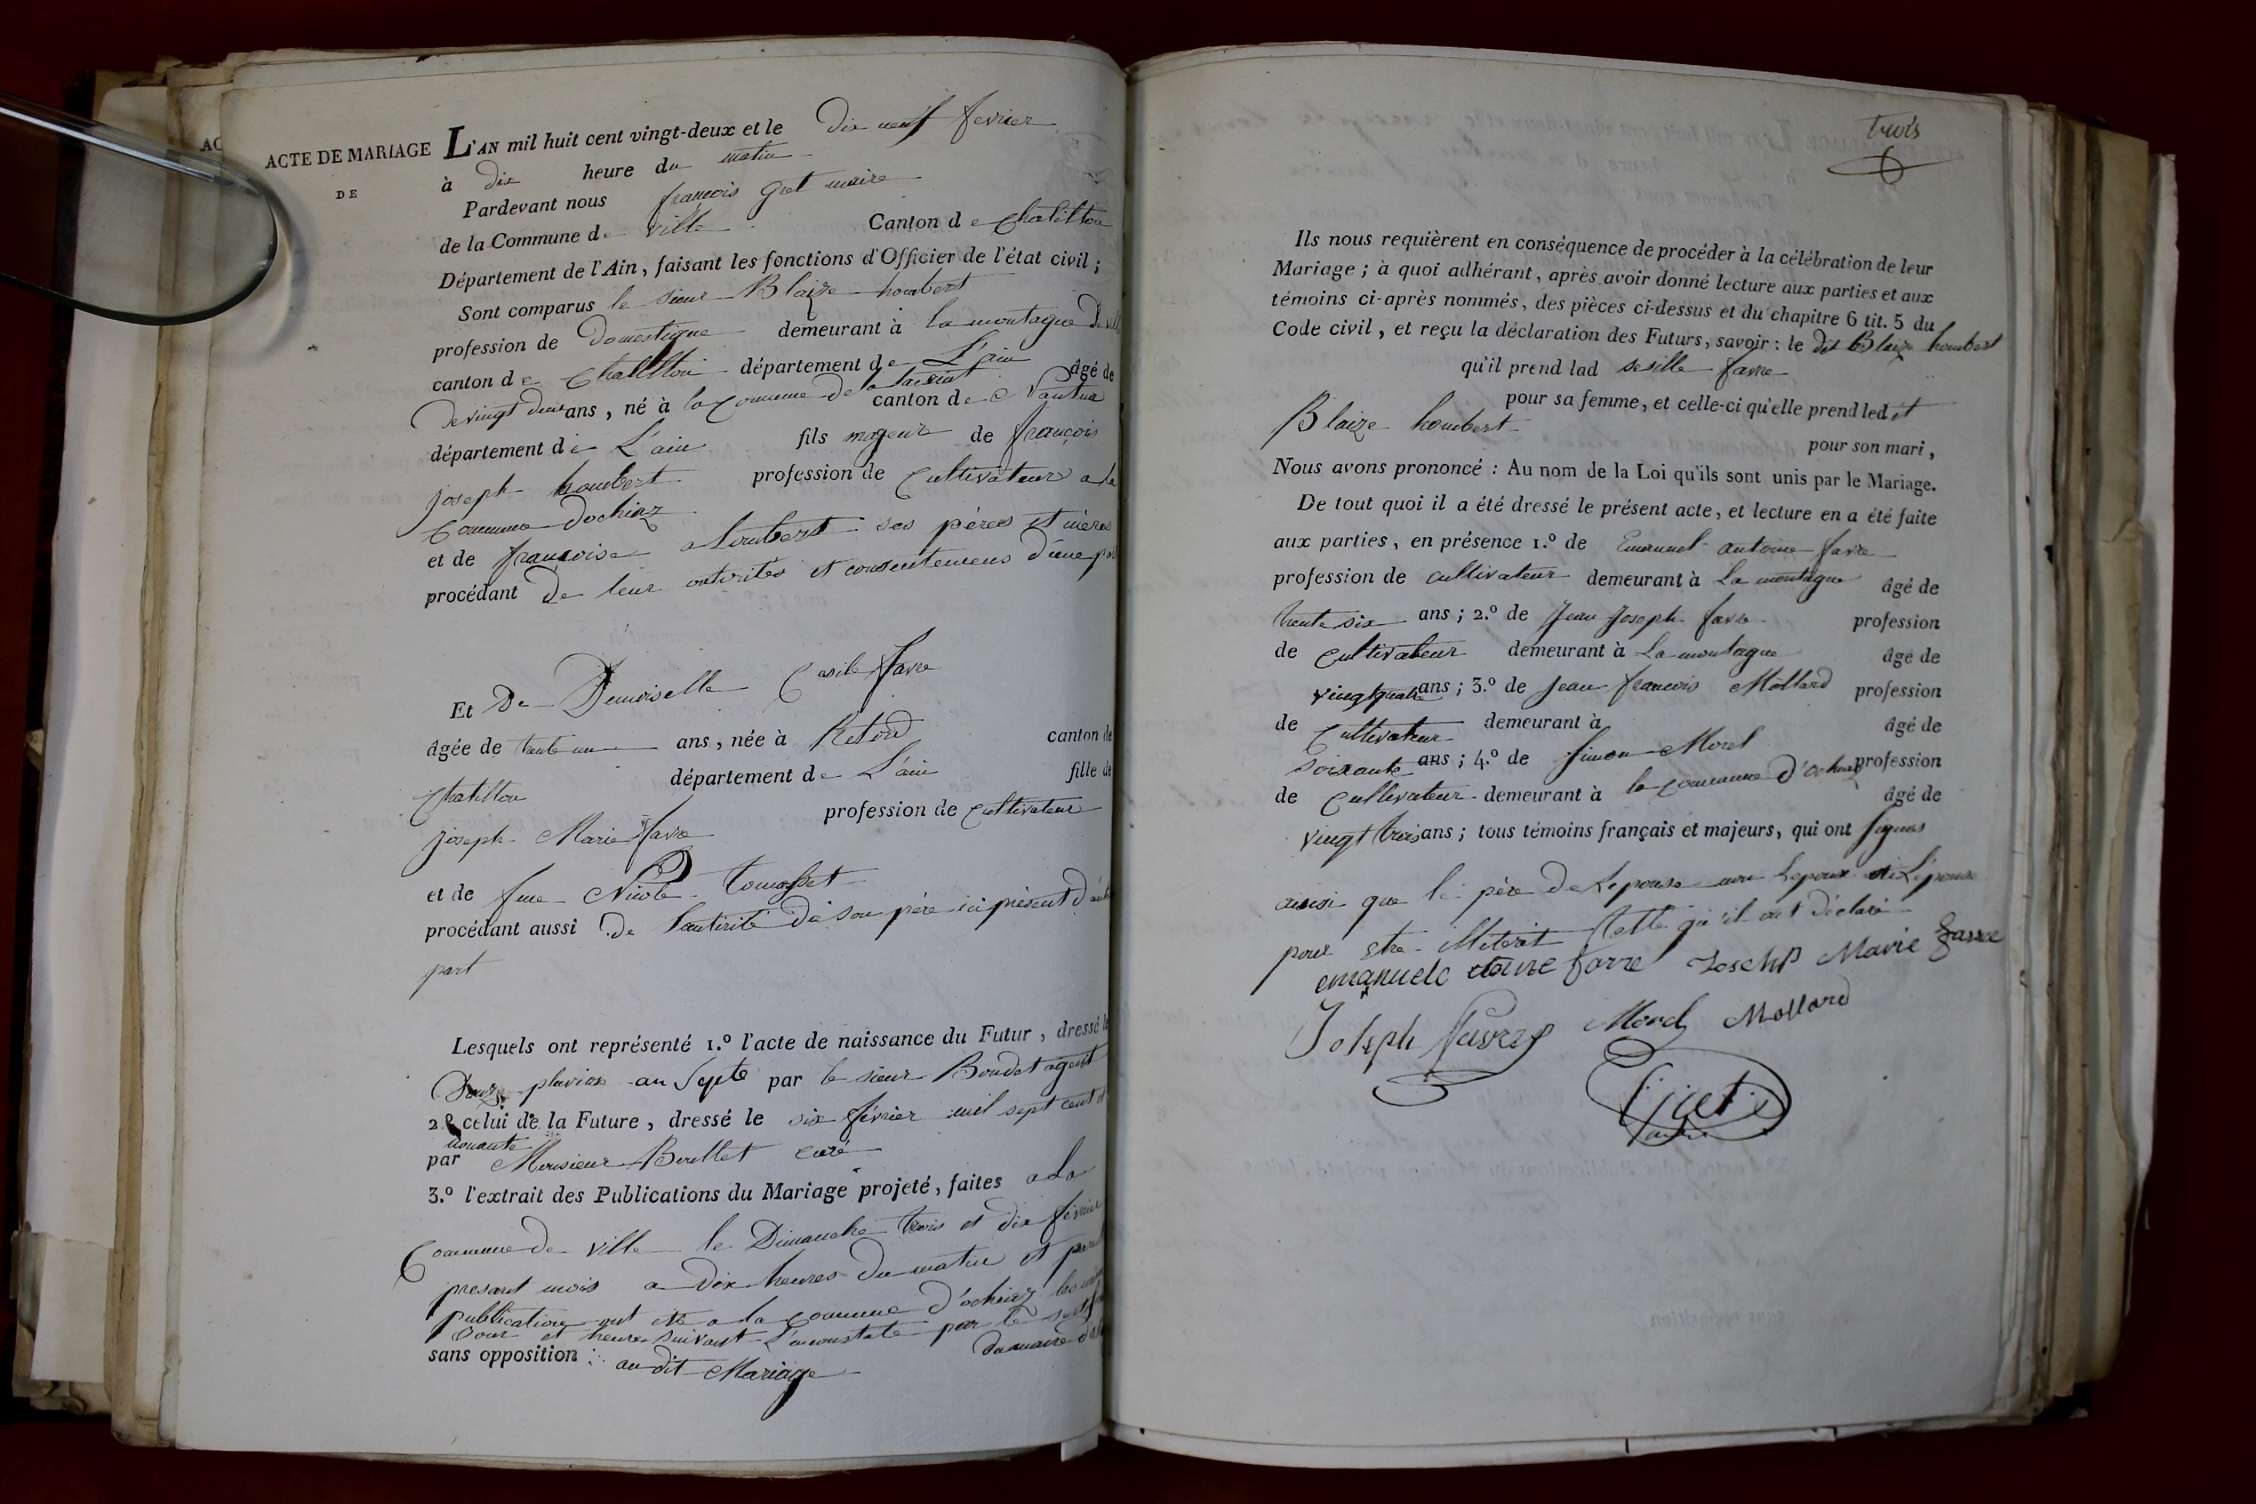 ACTE DE MARIAGE
DE
L'AN mil huit cent vingt-deux et le dix neuf fevrier
à dix heure du matin
Pardevant nous françois gret maire
de la Commune de ville Canton de Chatillon
Département de l'Ain, faisant les fonctions d'Officier de l'état civil;
Sont comparus le sieur Blaize humbert
profession de Domestique demeurant à la montagne De vill
canton de Chatillon département de L'ain âgé de
De vingt deux ans, né à la Commune de canton de Nantua
département de L'ain fils majeur de françois
joseph humbert profession de Cultivateur a la
Commune dochiaz
et de françoise humbert ses pères et mères
procédant De leur autorités et consentemens d'une
Et De Demoiselle Cesile favre
âgée de trente un ans, née à Retord canton de
Chatillon département de L'ain fille de
joseph Marie favre profession de Cultivateur
et de fue Nicole
procédant aussi De l'autirité de son père ici présent
part
Lesquels ont représenté 1.º l'acte de naissance du Futur, dressé le
pluviose an Septe par le sieur Boudet agent
2.º celui de la Future, dressé le six février mil sept cent
nonante
par Monsieur Boullet curé
3.º l'extrait des Publications du Mariage projeté, faites a la
Commune De ville le Dimanche trois et dix février
present mois a Dix heures du matin et
publication ont été a la commune d'ochiaz les
Jour et heure suivant constaté par le
sans opposition : au dit Mariage du maire
trois
Ils nous requièrent en conséquence de procéder à la célébration de leur
Mariage; à quoi adhérant, après avoir donné lecture aux parties et aux
témoins ci-après nommés, des pièces ci-dessus et du chapitre 6 tit. 5 du
Code civil, et reçu la déclaration des Futurs, savoir : le dit Blaize humbert
qu'il prend lad sesille favre
pour sa femme, et celle-ci qu'elle prend led it
Blaize humbert pour son mari,
Nous avons prononcé : Au nom de la Loi qu'ils sont unis par le Mariage.
De tout quoi il a été dressé le présent acte, et lecture en a été faite
aux parties, en présence 1.º de Emanuel antoine favre
profession de cultivateur demeurant à La montagne âgé de
trente six ans; 2.º de Jean Joseph favre profession
de Cultivateur demeurant à La montagne âgé de
vingt quatre ans; 3.º de Jean françois Mollard profession
de Cultivateur demeurant à âgé de
soixante ans; 4.º de Simon Morel profession
de Cultivateur demeurant à la commune d'ochiaz âgé de
vingt trois ans; tous témoins français et majeurs, qui ont signés
ainsi que le père De Lepouse non Lepoux ni L'épouse
pour etre illiterit telle qu'il ont déclaré
emanuele favre Joseph Marie favre
Joseph favre Morel Mollard
Gret